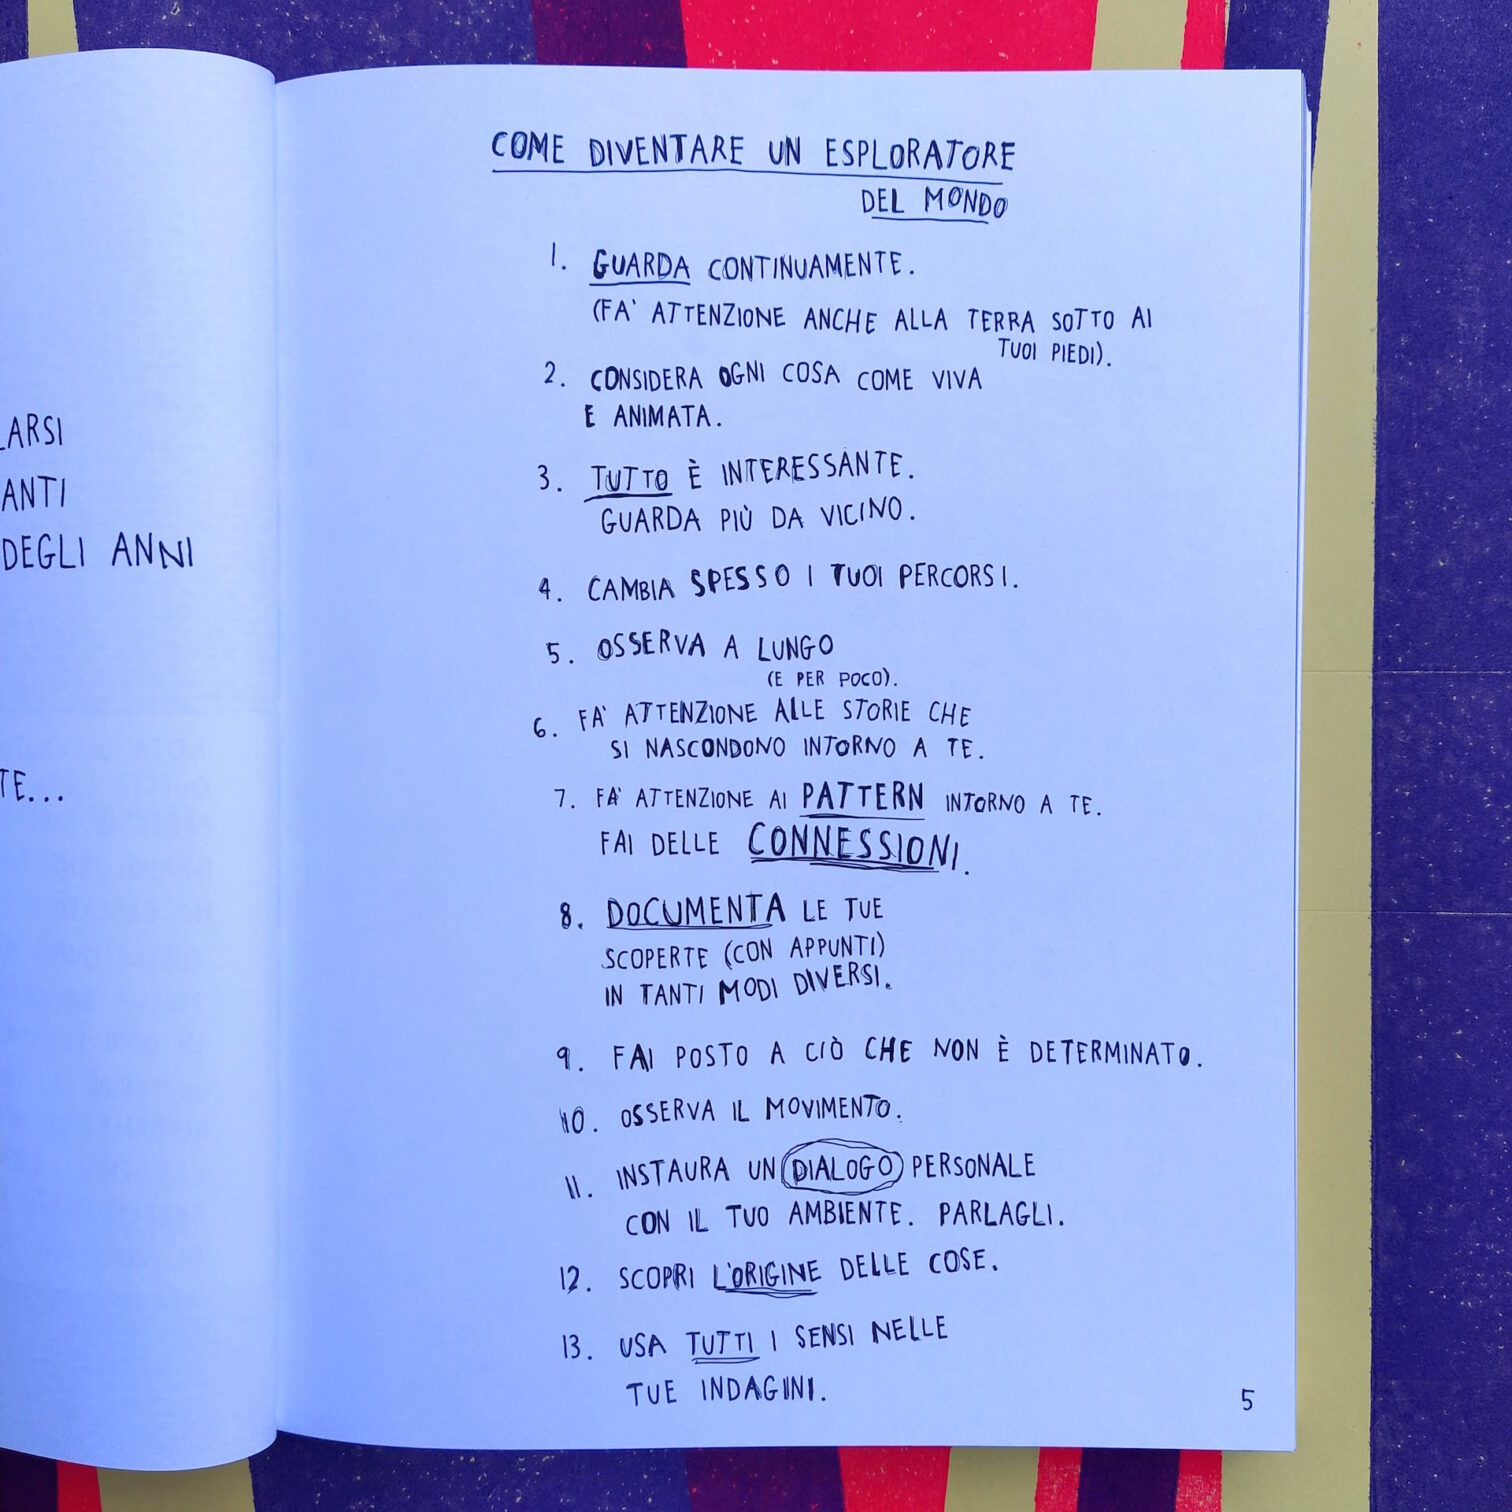 LARSI
ANTI
DEGLI ANNI
TE...
COME DIVENTARE UN ESPLORATORE
DEL MONDO
1. GUARDA CONTINUAMENTE.
(FA' ATTENZIONE ANCHE ALLA TERRA SOTTO AI
TUOI PIEDI).
2. CONSIDERA OGNI COSA COME VIVA
E ANIMATA.
3. TUTTO È INTERESSANTE.
GUARDA PIÙ DA VICINO.
4. CAMBIA SPESSO I TUOI PERCORSI.
5. OSSERVA A LUNGO
(E PER POCO).
6. FA' ATTENZIONE ALLE STORIE CHE
SI NASCONDONO INTORNO A TE.
7. FA' ATTENZIONE AI PATTERN INTORNO A TE.
FAI DELLE CONNESSIONI.
8. DOCUMENTA LE TUE
SCOPERTE (CON APPUNTI)
IN TANTI MODI DIVERSI.
9. FAI POSTO A CIÒ CHE NON È DETERMINATO.
10. OSSERVA IL MOVIMENTO.
11. INSTAURA UN DIALOGO PERSONALE
CON IL TUO AMBIENTE. PARLAGLI.
12. SCOPRI L'ORIGINE DELLE COSE.
13. USA TUTTI I SENSI NELLE
TUE INDAGINI.
5